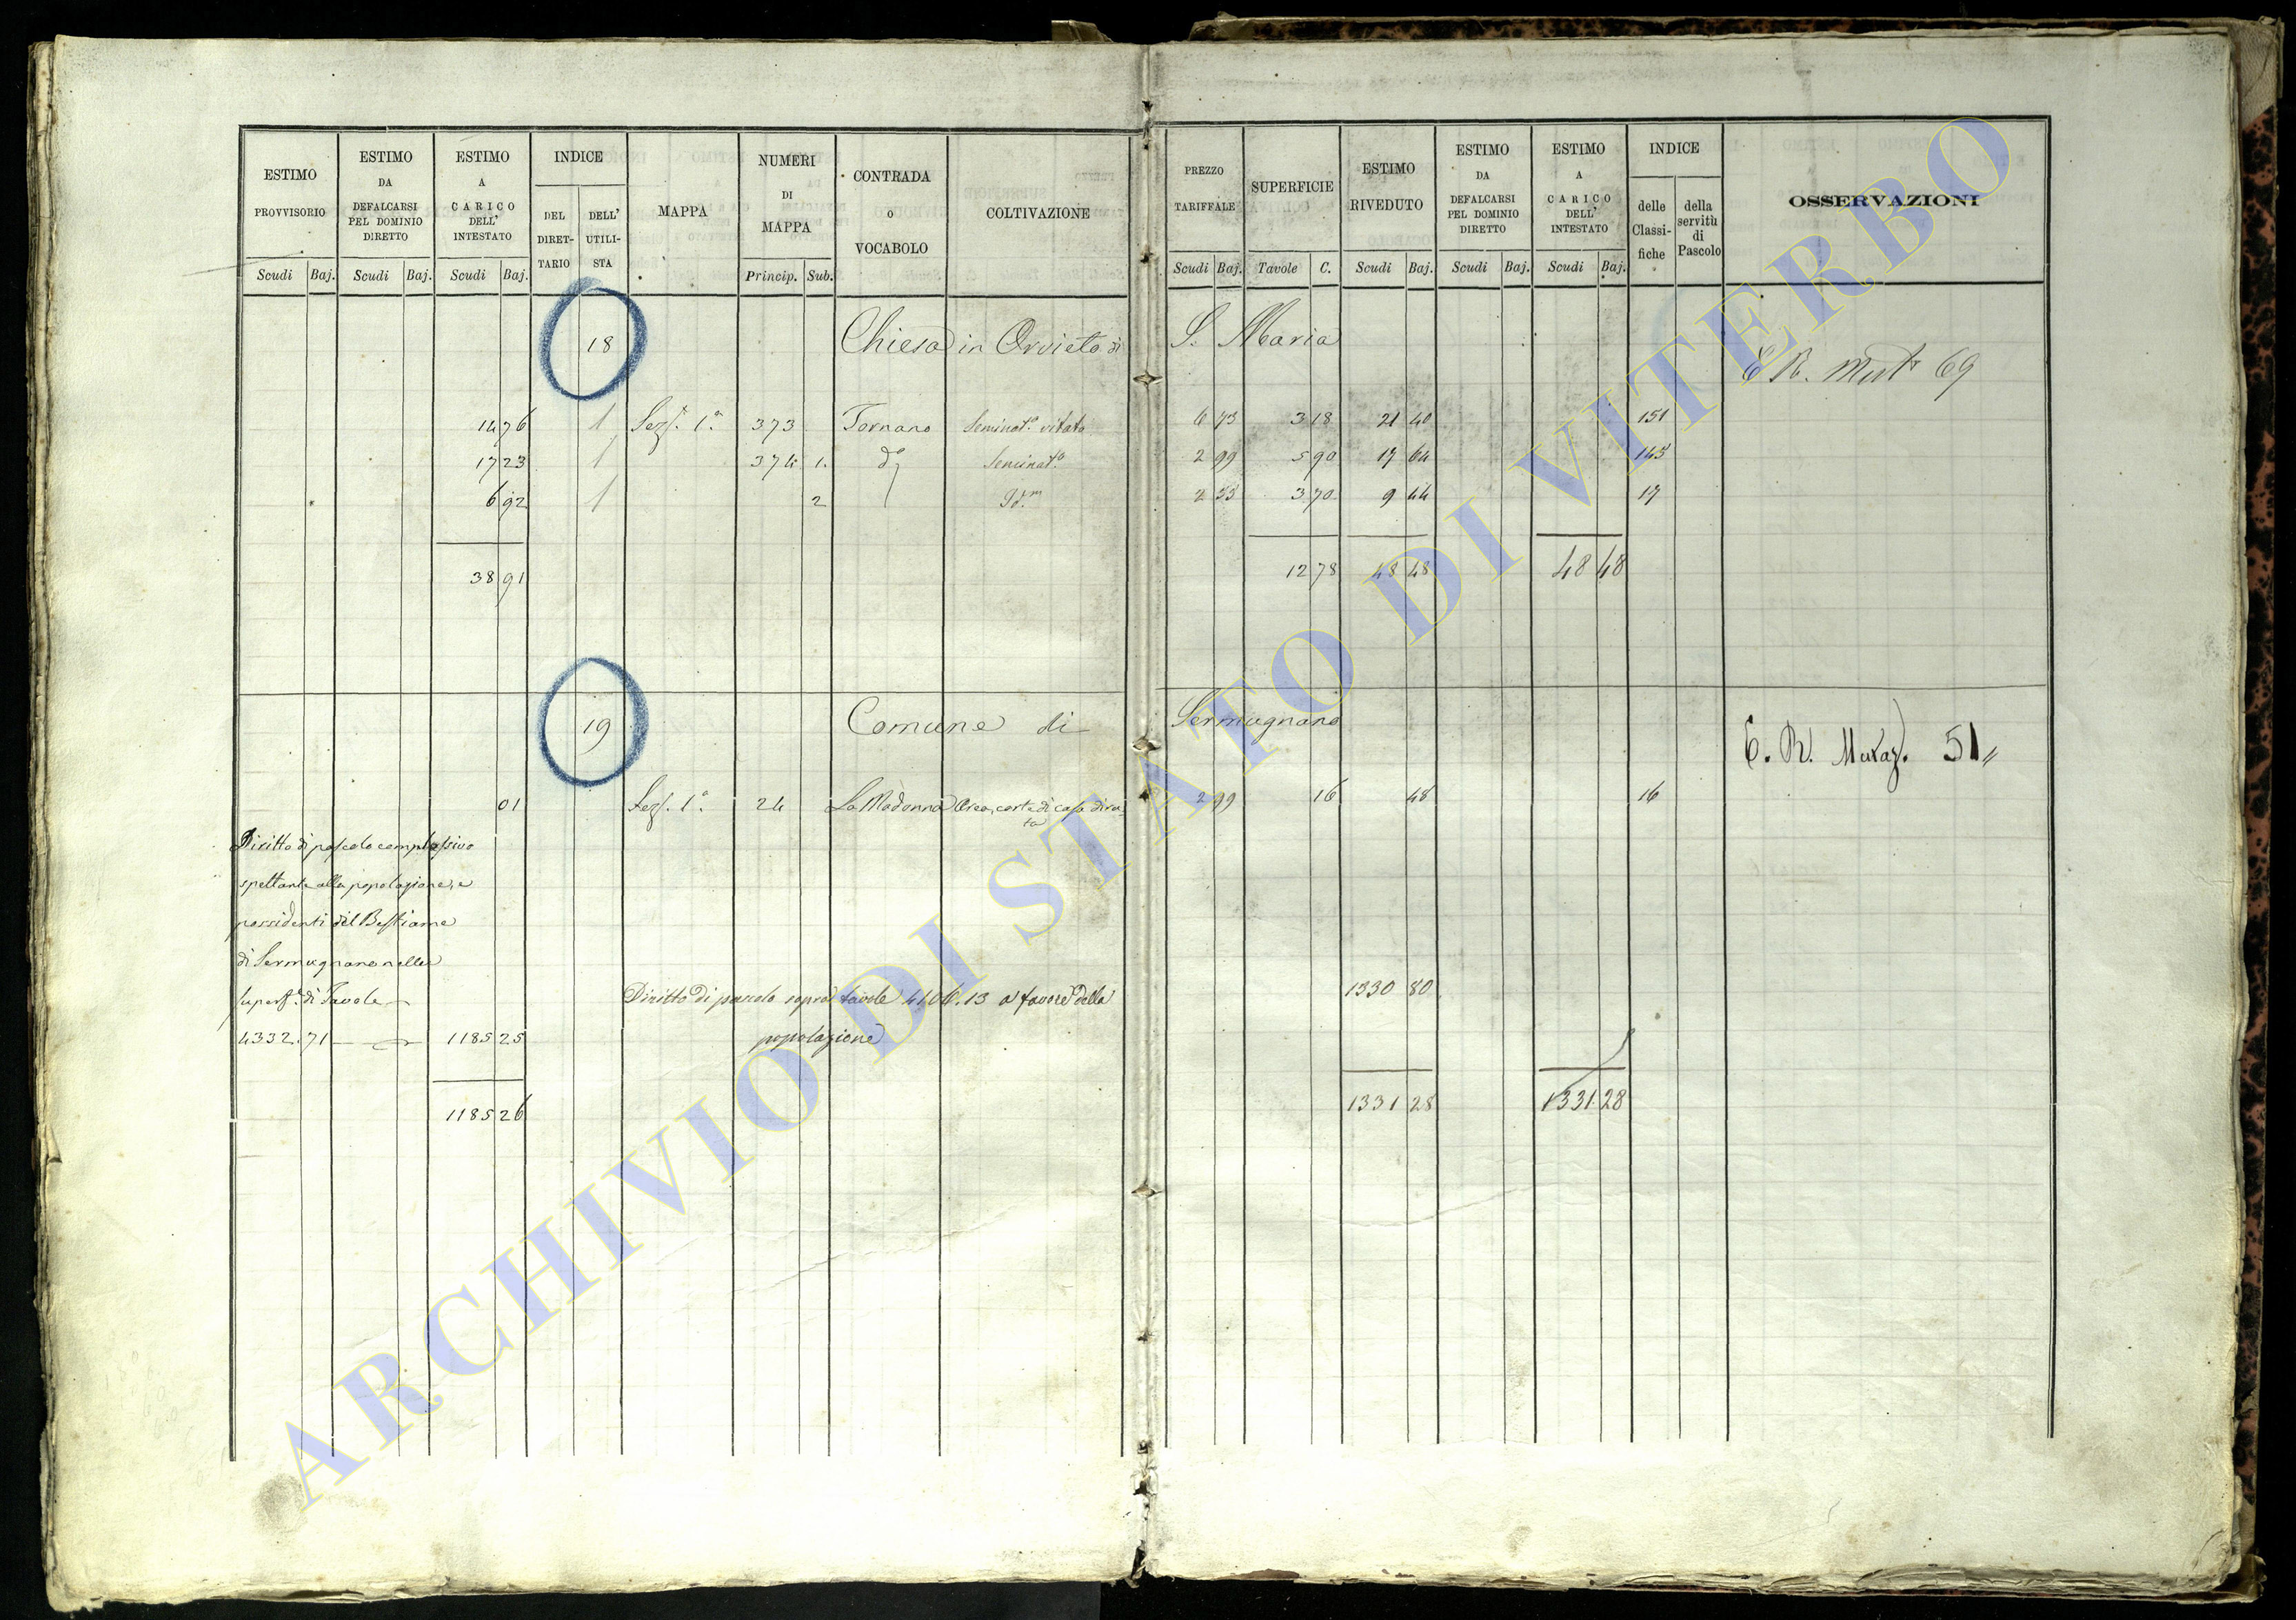 ESTIMO PROVVISORIO | ESTIMO DA DEFALCARSI PEL DOMINIO DIRETTO | ESTIMO A CARICO DELL' INTESTATO | INDICE | MAPPA | NUMERI DI MAPPA | CONTRADA O VOCABOLO | COLTIVAZIONE | PREZZO TARIFFALE | SUPERFICIE | ESTIMO RIVEDUTO | ESTIMO DA DEFALCARSI PEL DOMINIO DIRETTO | ESTIMO A CARICO DELL' INTESTATO | INDICE | OSSERVAZIONI
DEL DIRET-TARIO | DELL' UTILI-STA | delle Classi-fiche | della servitù di Pascolo
Scudi Baj. | Scudi Baj. | Scudi Baj. | Princip. Sub. | Scudi Baj. | Tavole C. | Scudi Baj. | Scudi Baj. | Scudi Baj.
18 Chiesa in Orvieto di S. Maria
C R. Mut 69
14 76 1 Sez. 1.a 373 Tornano Seminat.o vitato 6 73 3 18 21 40 151
17 23 1 374 1. d.o Seminat.o 2 99 5 90 17 64 145
6 92 1 2 Id.m 2 55 3 70 9 44 17
38 91 12 78 48 48 48 48
19 Comune di Sermugnano
C. R. Mutaz. 51"
01 Sez. 1.a 24 La Madonna Area, corte di casa diru-
ta
2 99 16 48 16
Diritto di pascolo complessivo
spettante alla popolazione, e
possidenti del Bestiame
di Sermugnano nella
superf.e di Tavole
4332.71 1185 25
Diritto di pascolo sopra tavole 4106.13 a favore della
popolazione
1330 80
1185 26 1331 28 1331 28
ARCHIVIO DI STATO DI VITERBO